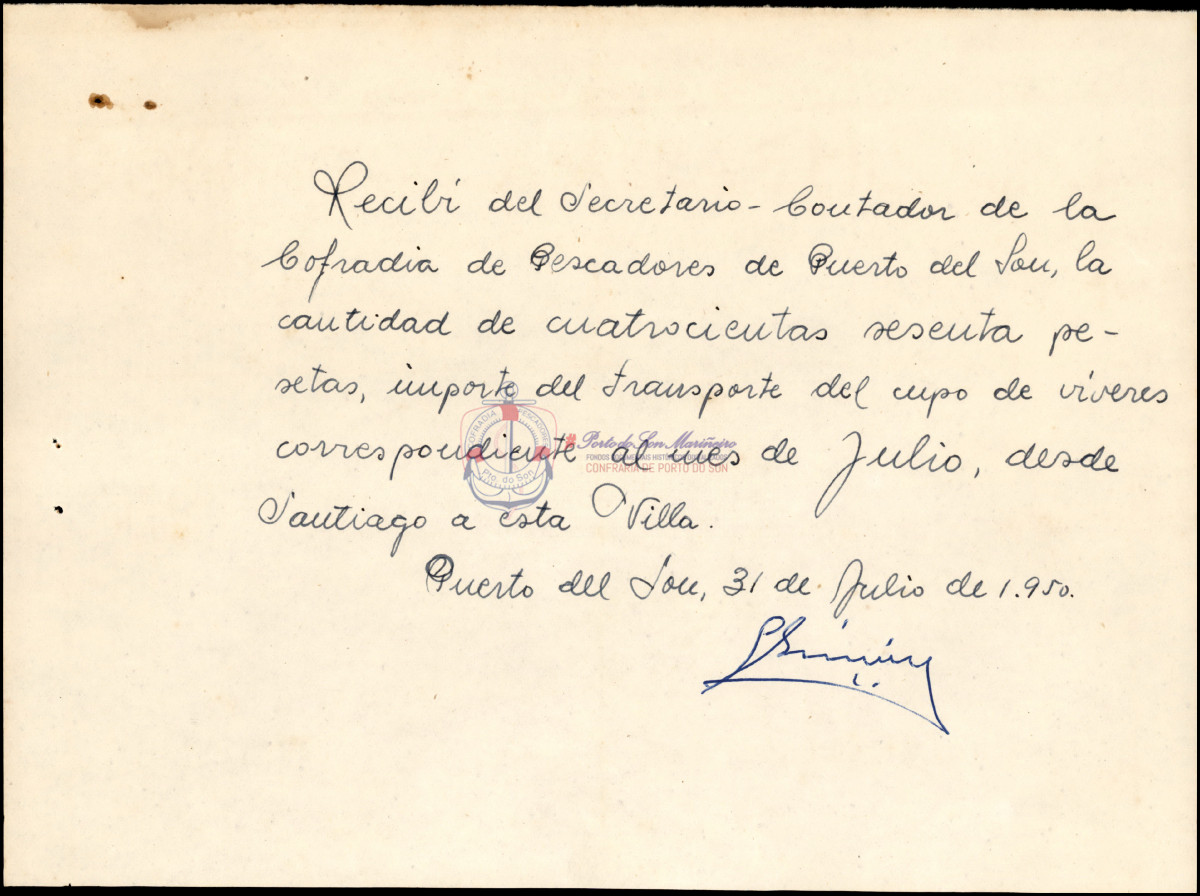 Recibí del Secretario-Contador de la
Cofradia de Pescadores de Puerto del Son, la
cantidad de cuatrocientas sesenta pe-
setas, importe del transporte del cupo de víveres
correspondiente al mes de Julio, desde
Santiago a esta Villa.
Puerto del Son, 31 de Julio de 1.950.
COFRADIA PESCADORES
Pto. do Son
#Porto do Son Mariñeiro
CONFRARÍA DE PORTO DO SON